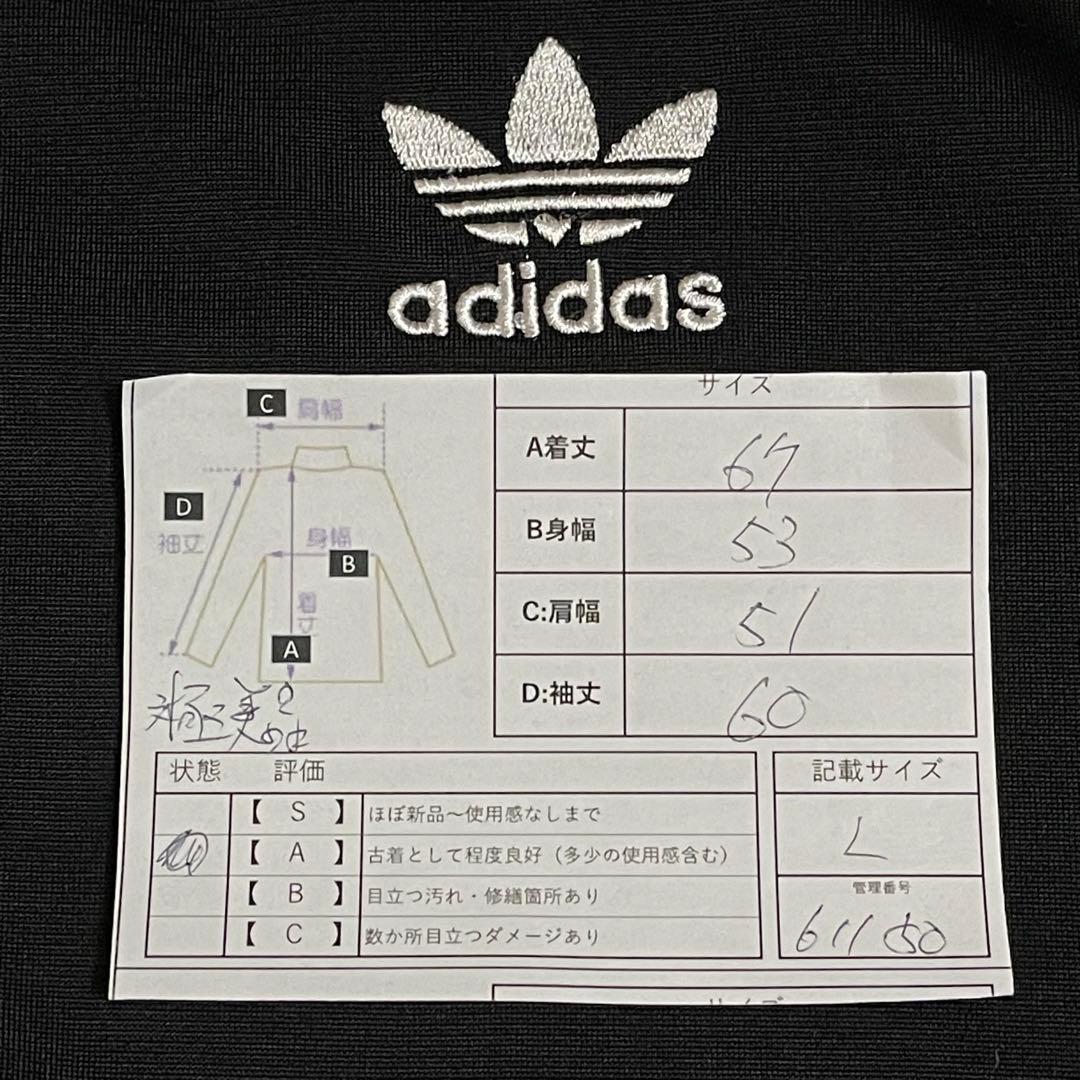 adidas
サイズ
C 肩幅
A着丈 67
D
袖丈
B身幅 53
身幅
B
着丈
C:肩幅 51
A
D:袖丈 60
極美
状態 評価
記載サイズ
【 S 】 ほぼ新品～使用感なしまで
L
【 A 】 古着として程度良好（多少の使用感含む）
管理番号
【 B 】 目立つ汚れ・修繕箇所あり
【 C 】 数か所目立つダメージあり
サイズ